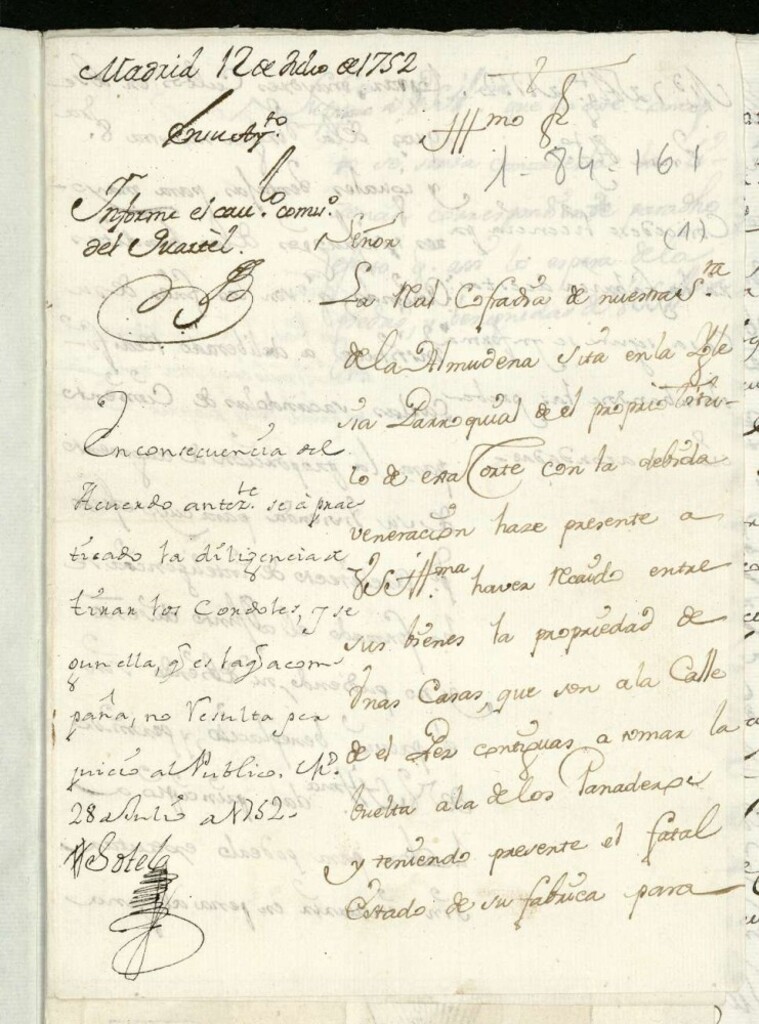 Madrid 12 de Julio de 1752
En su Ay.to
Informe el cau.o comis.o
del Quartèl.
En consecuencia del
Acuerdo anter.te se à prac
ticado la diligencia de
tirar los Cordeles, y se
gun ella, q.e es la q.e acom
paña, no resulta per
juicio al Publico. M.d
28 de Julio de 1752.
Sotelo
Ill.mo
1-84-161
(1)
Señor
La Real Cofradia de nuestra S.ra
de la Almudena sita en la Ygle
sia Parroquial de el proprio titu-
lo de esta Corte con la debida
veneracion haze presente a
V.S. Ill.ma haver recaido entre
sus bienes la propriedad de
Unas Casas, que son a la Calle
de el Pez contiguas a tomar la
buelta a la de los Panaderos
y teniendo presente el fatal
Estado de su fabrica para